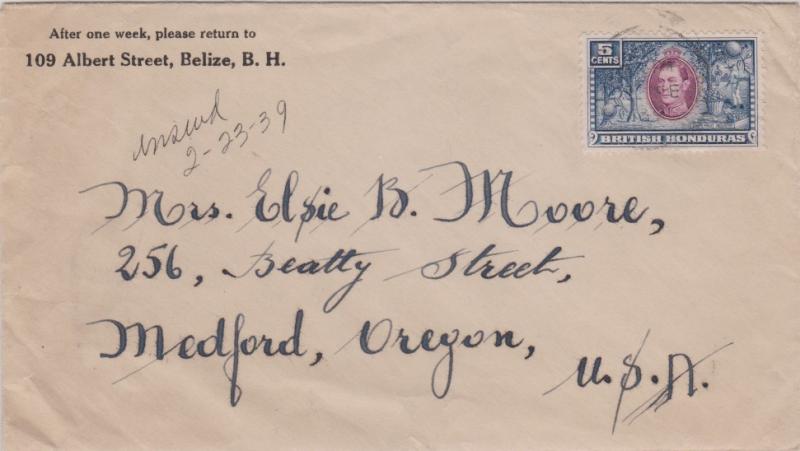 After one week, please return to
109 Albert Street, Belize, B. H.
5
CENTS
BRITISH HONDURAS
2-23-39
Mrs. Elsie B. Moore,
256, Beatty Street,
Medford, Oregon,
U.S.A.